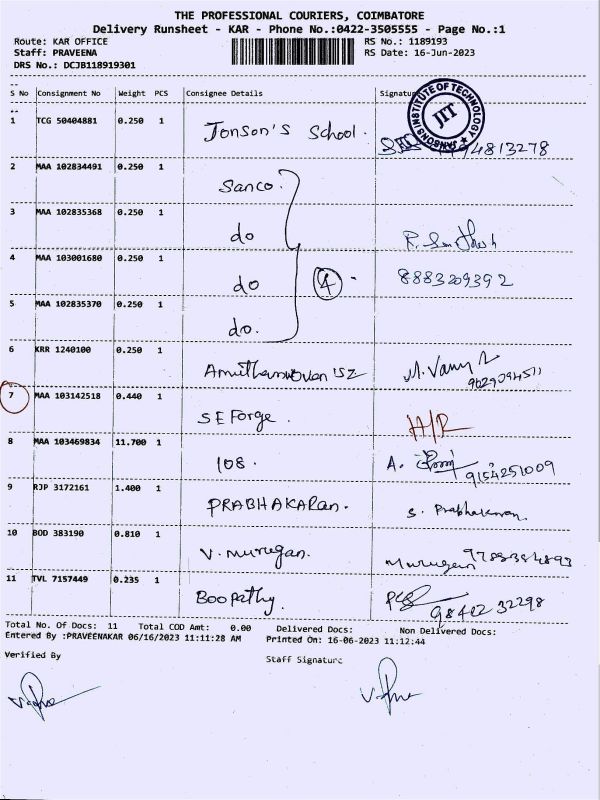 THE PROFESSIONAL COURIERS, COIMBATORE
Delivery Runsheet - KAR - Phone No.:0422-3505555 - Page No.:1
Route: KAR OFFICE RS No.: 1189193
Staff: PRAVEENA RS Date: 16-Jun-2023
DRS No.: DCJB118919301
S No Consignment No Weight PCS Consignee Details Signature
JIT
1 TCG 50404881 0.250 1 Jonson's School.
2 MAA 102834491 0.250 1 Sanco.
3 MAA 102835368 0.250 1 do
4 MAA 103001680 0.250 1 do 4 8883209392
5 MAA 102835370 0.250 1 do.
6 KRR 1240100 0.250 1
7 MAA 103142518 0.440 1 SE Forge. H/R
8 MAA 103469834 11.700 1 108. A. 9154251009
9 RJP 3172161 1.400 1 PRABHAKARan. S. Prabhakaran
10 BOD 383190 0.810 1 V. murugan. Murugan
11 TVL 7157449 0.235 1 Boopathy. 98422 32298
Total No. Of Docs: 11 Total COD Amt: 0.00 Delivered Docs: Non Delivered Docs:
Entered By :PRAVEENAKAR 06/16/2023 11:11:28 AM Printed On: 16-06-2023 11:12:44
Verified By Staff Signature